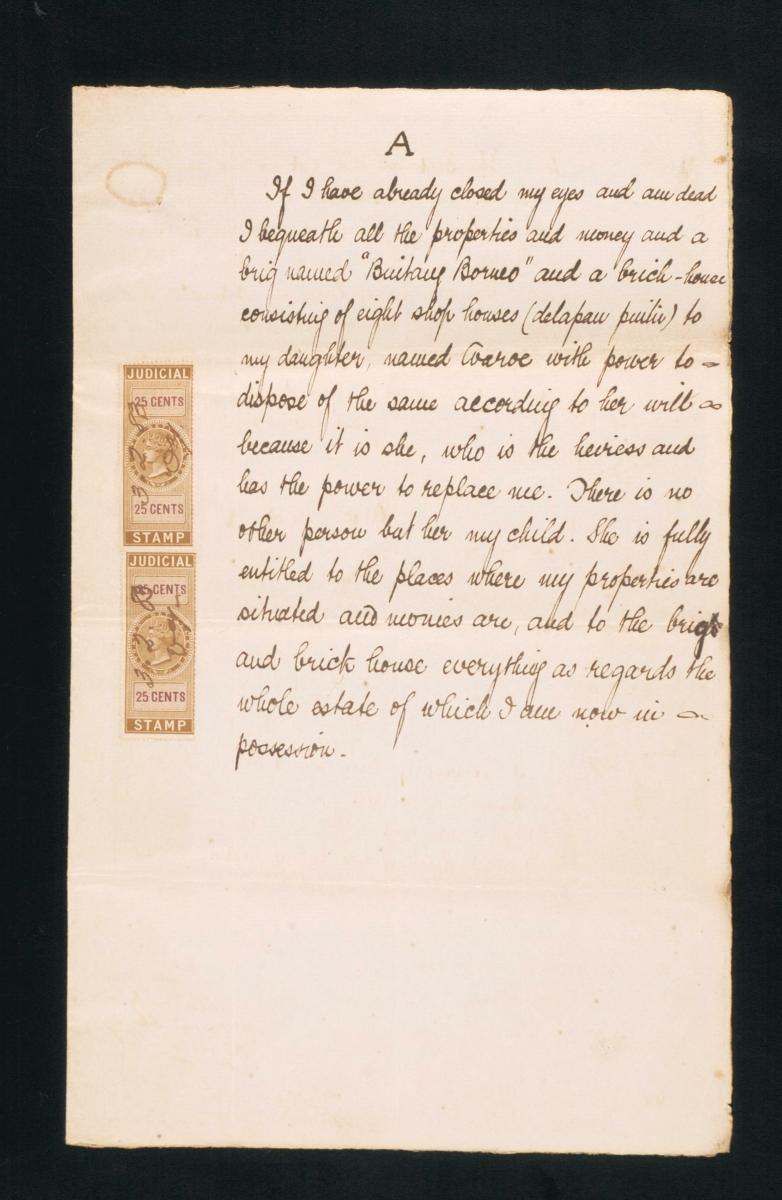 A
If I have already closed my eyes and am dead
I bequeath all the properties and money and a
brig named "Buitang Borneo" and a brick-house
consisting of eight shop houses (delapan pintu) to
my daughter, named with power to
dispose of the same according to her will
because it is she, who is the heiress and
has the power to replace me. There is no
other person but her my child. She is fully
entitled to the places where my properties are
situated and monies are, and to the brig
and brick house everything as regards the
whole estate of which I am now in
possession.
JUDICIAL
25 CENTS
25 CENTS
STAMP
JUDICIAL
25 CENTS
25 CENTS
STAMP